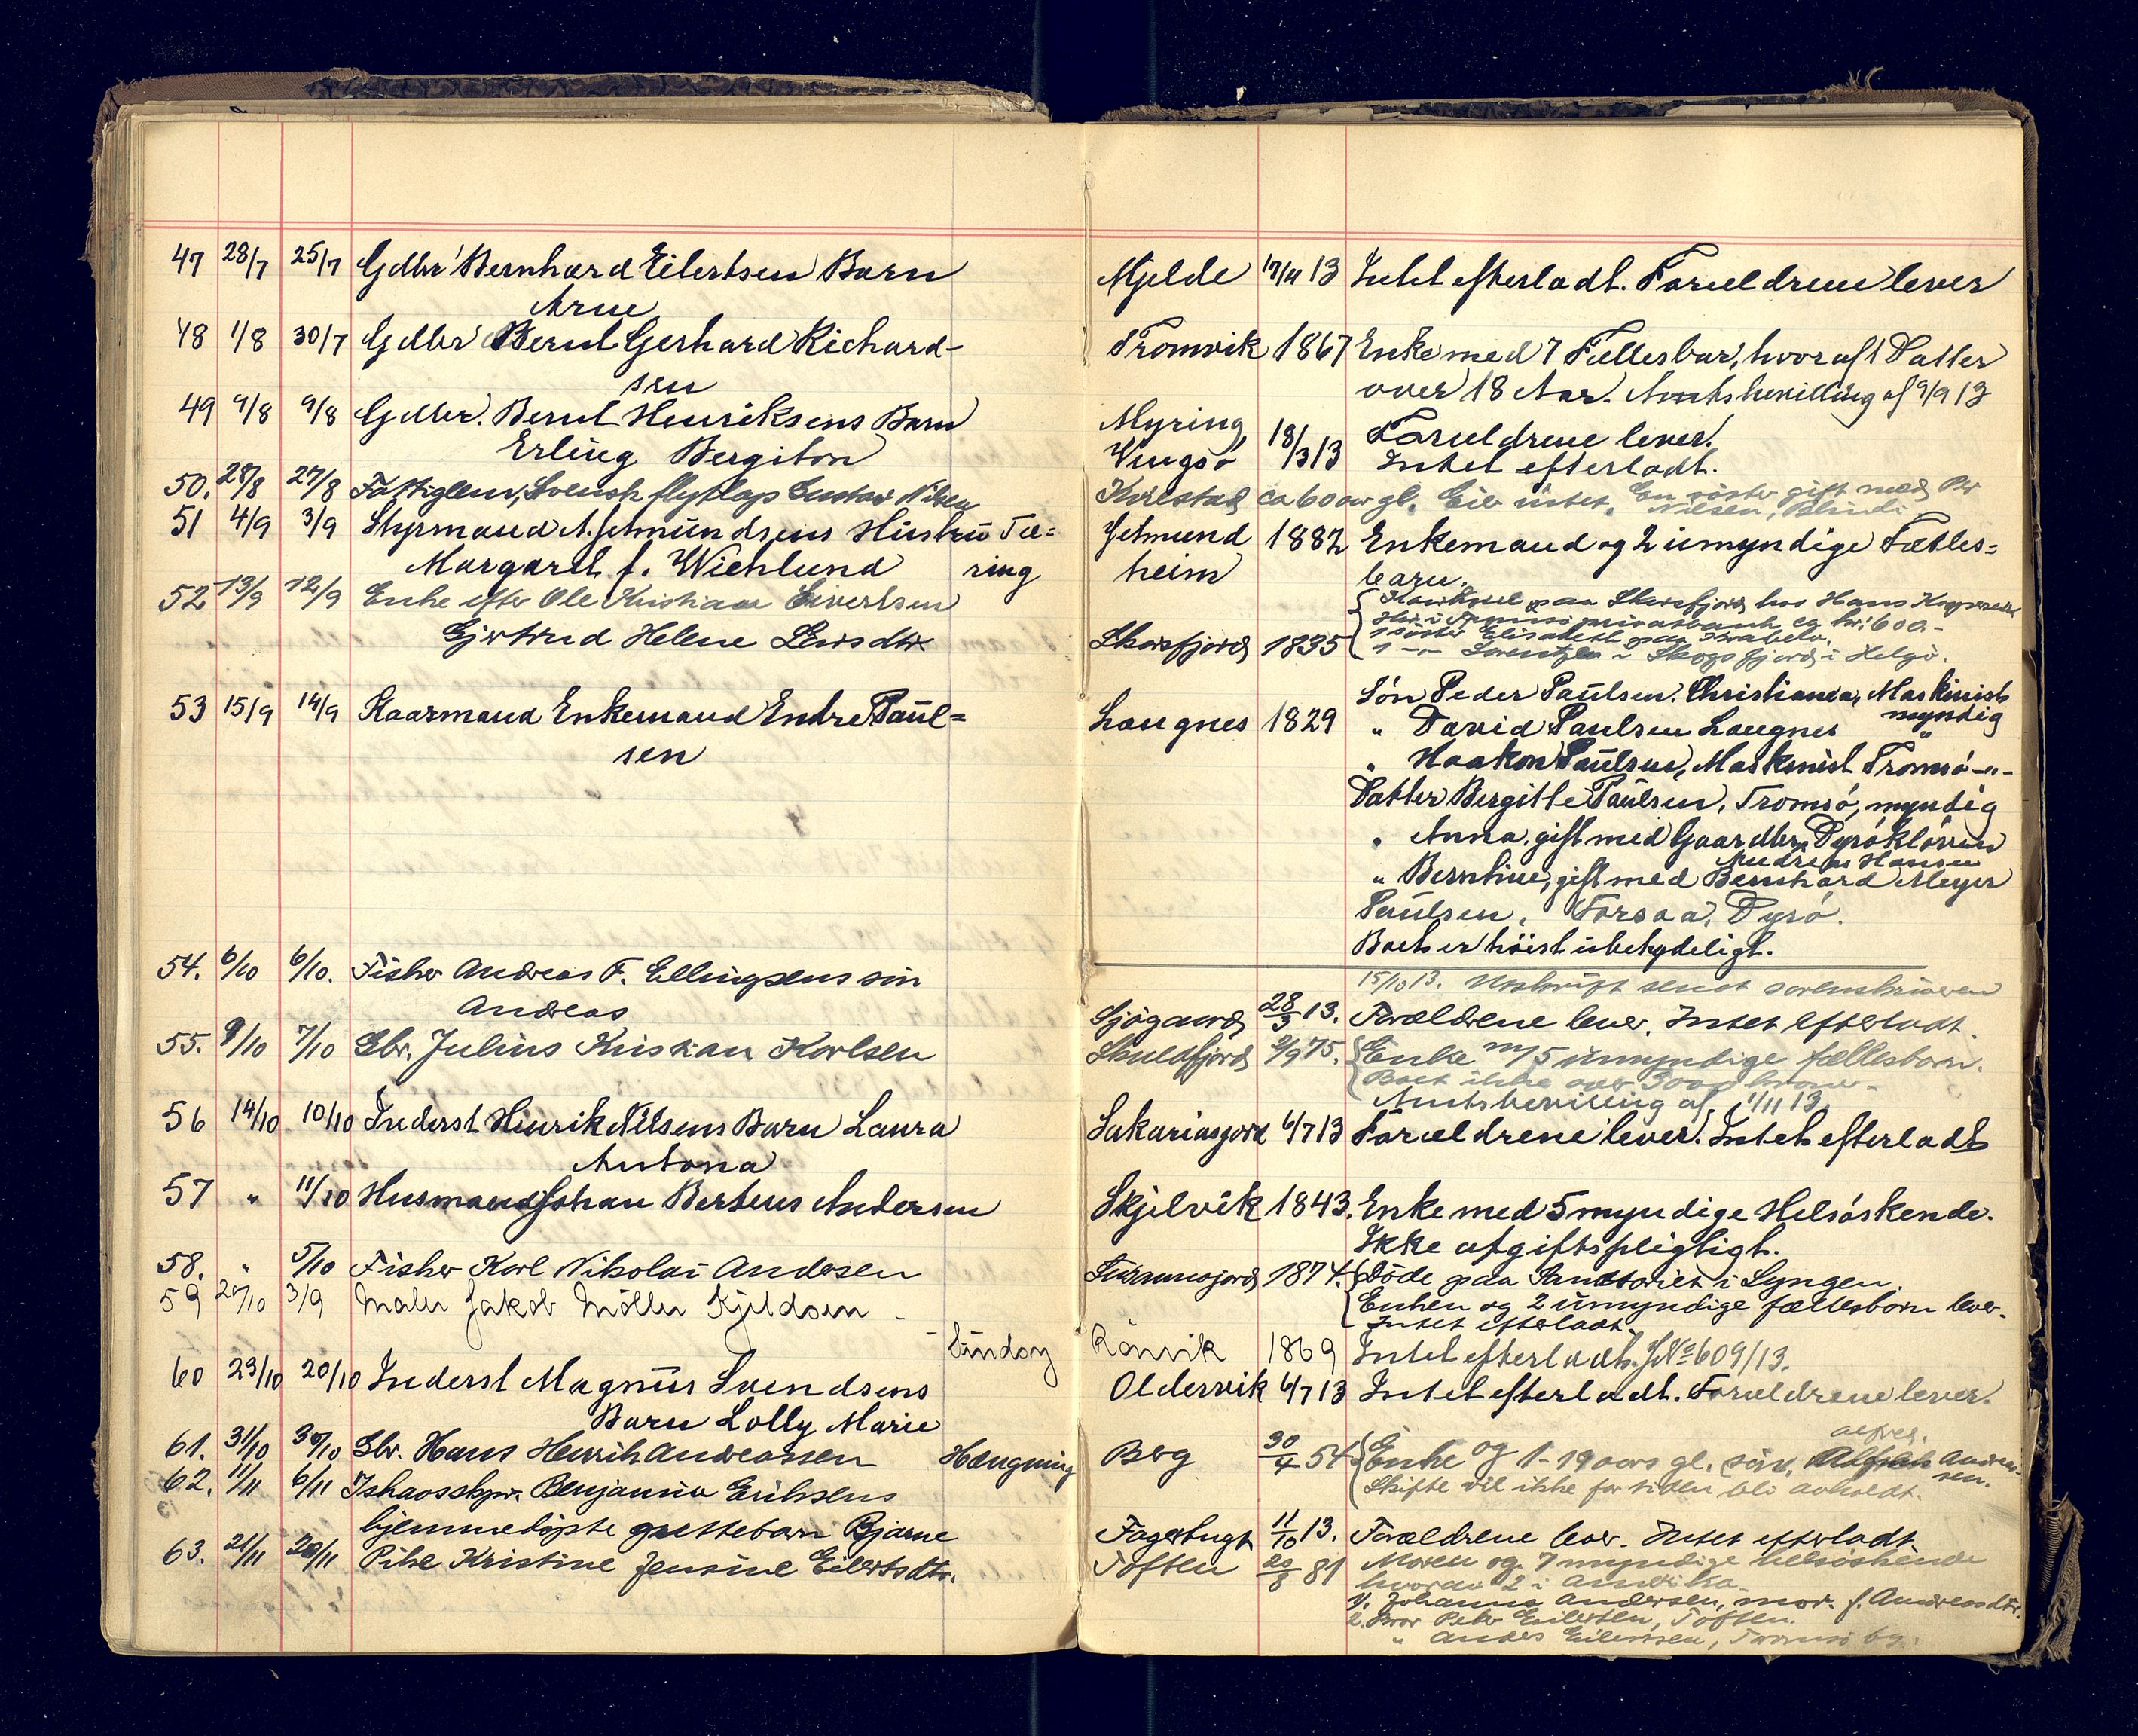 47 28/7 25/7 Gdbr Bernhard Eilertsen Barn Mjelde 17/4 13 Intet efterladt. Forældrene lever
Arne
48 1/8 30/7 Gdbr Bernt Gerhard Richard- Tromvik 1867 Enke med 7 Fællesbar, hvoraf 1 Datter
sen over 18 Aar. Amtsbevilling af 9/9 13
49 9/8 9/8 Gdbr. Bernt Henriksens Barn Myring, 18/3 13 Forældrene lever.
Erling Bergiton Vengsö Intet efterladt.
50. 28/8 27/8 Fattiglem, Svensk flytlap Gustav Nilsen ca 60 aar gl. Eier intet. En söster gift med Per
Nilsen,
51 4/9 3/9 Styrmand A. Jetmundsens Hustru Tæ= Jetmund 1882 Enkemand og 2 umyndige Fælles=
Margaret f. Wichlund ring heim barn.
52 13/9 12/9 Enke efter Ole Kristian Sivertsen paa Skorsfjord hos Hans
Hovi Tromsö privatbank ca kr: 600.-
Gjertrud Helene Larsdtr. Skorsfjord 1835 1 söster Elisabeth paa
1 -"- i Skogsfjord i Helgö.
53 15/9 14/9 Kaarmand Enkemand Endre Paul= Langnes 1829 Sön Peder Paulsen. Christiania, Maskinist
sen myndig
" David Paulsen Langnes "
" Haakon Paulsen, Maskinist Tromsö -"-
Datter Bergitte Paulsen, Tromsö, myndig
" Anna, gift med Gaardbr. Dyröklöven
Andreas Hansen
" Berntine, gift med Bernhard Meyer
Paulsen, Forsaa, Dyrö.
Boet er höist ubetydeligt.
15/10 13. Utskrift sendt sorenskriveren
54. 6/10 6/10. Fisker Andreas F. Ellingsens sön
Andreas Sjögaard 28/3 13. Forældrene lever. Intet efterladt.
55. 9/10 7/10 Gbr. Julius Kristian Karlsen Skulsfjord 2/9 75. Enke m/ 5 umyndige fællesbarn.
Boet ikke over 3000 kroner.
Amtsbevilling af 1/11 13.
56 14/10 10/10 Inderst Hinrik Nilsens Barn Laura Sakariasjord 6/7 13 Forældrene lever. Intet efterladt
Antona
57 " 11/10 Husmand Johan Berteus Andersen Skjelvik 1843. Enke med 5 myndige Helsöskende.
Ikke afgiftspligtigt.
58. " 5/10 Fisker Karl Nikolai Andersen 1874. Döde paa Sanatoriet i Lyngen.
Enken og 2 umyndige fællesbarn lever.
Intet efterladt.
59 20/10 3/9 Maler Jakob Möller Kjeldsen -
Lindoy Rönvik 1869 Intet efterladt. J.No 609/13.
60 23/10 20/10 Inderst Magnus Svendsens Oldervik 6/7 13 Intet efterladt. Forældrene lever.
Barn Lolly Marie
61. 31/10 30/10 Gbr. Hans Henrik Andreassen Hængning Berg 30/4 54 Enke og 1 - 19 aars gl. sön, Alfred Andreas-
sen.
Skifte vil ikke for tiden bli avholdt.
62. 11/11 6/11 Ishavsskpr. Benjamin Eriksens
hjemmedöpte guttebarn Bjarne Fagerbugt 11/10 13. Forældrene lever. Intet efterladt.
63. 21/11 20/11 Pike Kristine Jensine Eilertsdtr. Toften 20/8 81 Moren og 7 myndige helsöskende
hvorav 2 i Amerika.
1. Johanna Andersen, mor. f. Andreasdtr.
2. Bror Peter Eilertsen, Toften.
" Anders Eilertsen, Tromsö by.